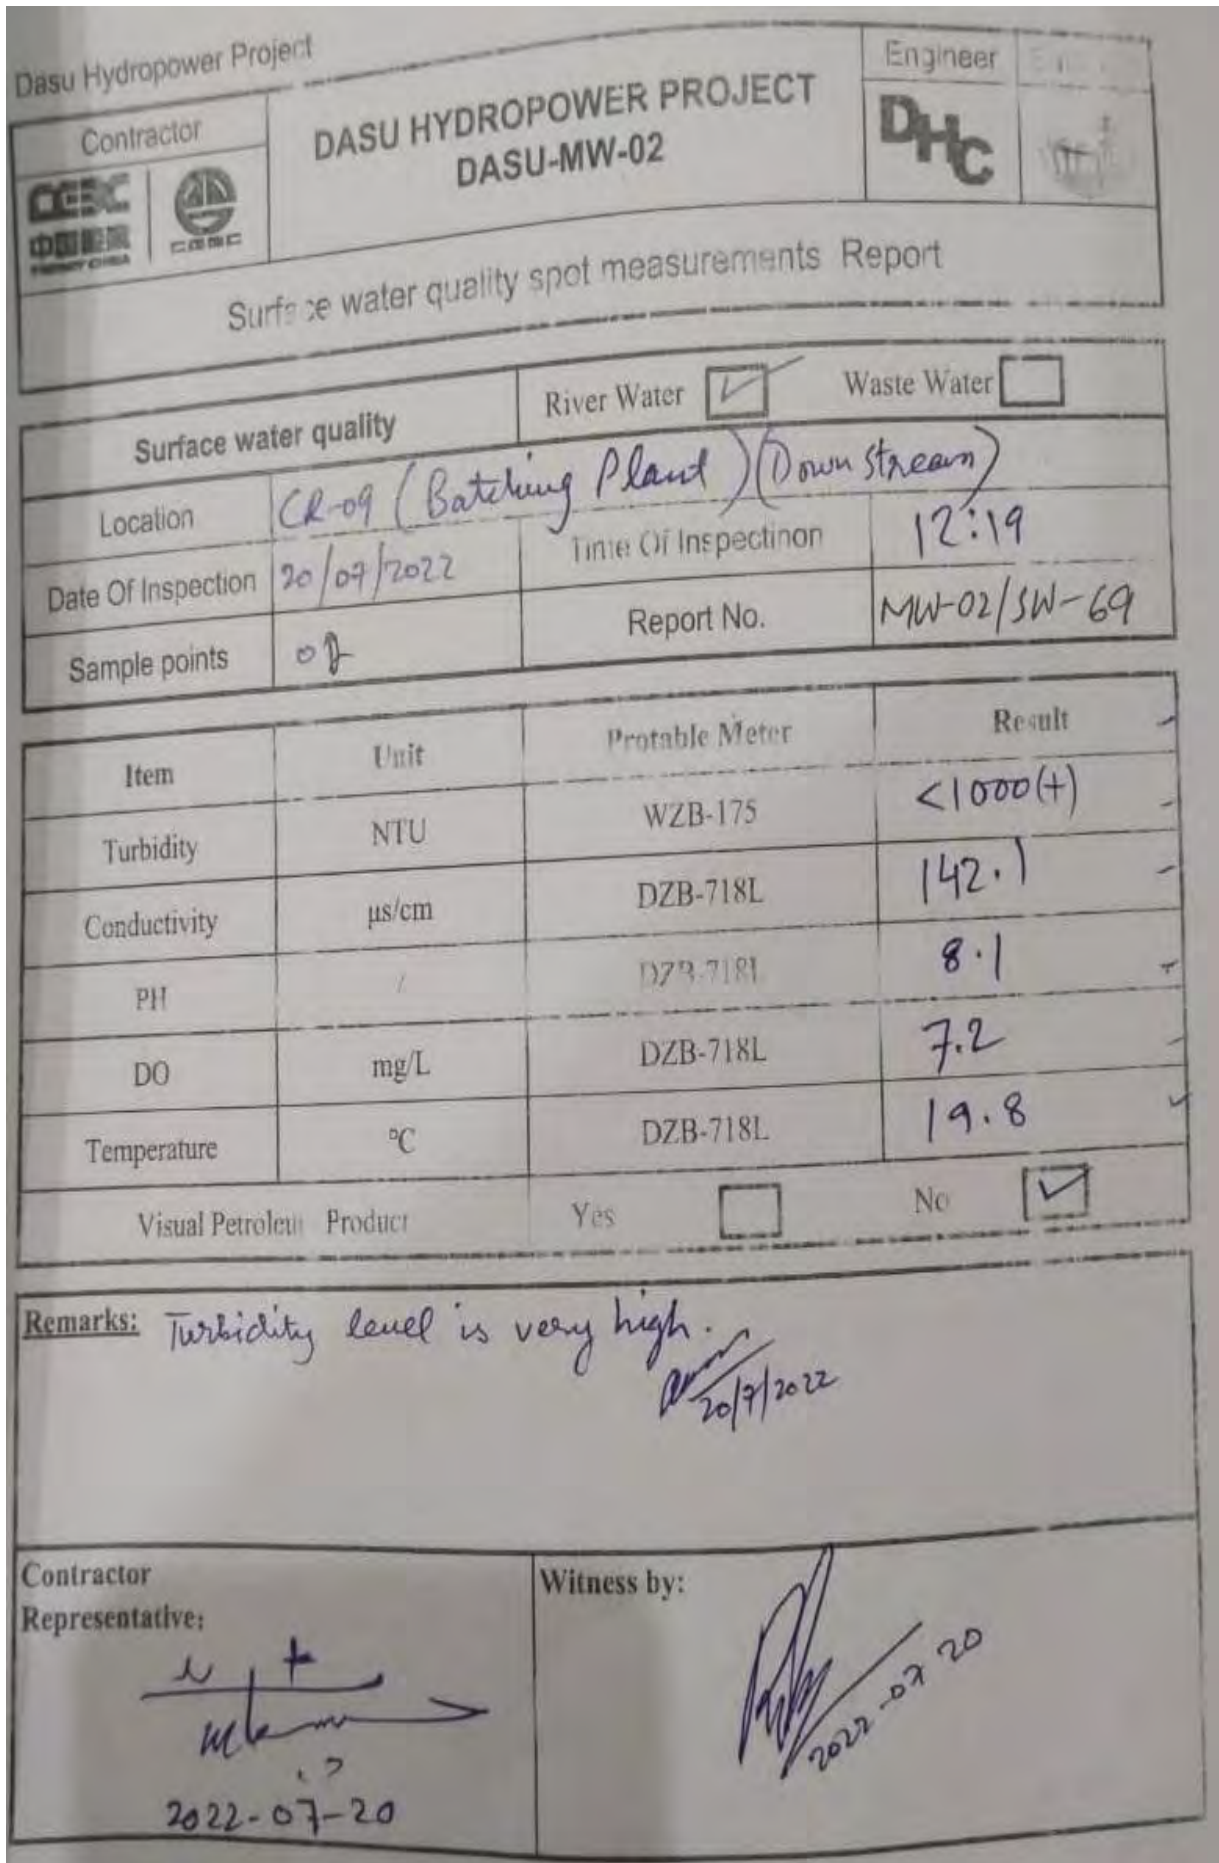 Dasu Hydropower Project
Contractor
DASU HYDROPOWER PROJECT
DASU-MW-02
Engineer
DHC
CEEC
中国能建
ENERGY CHINA
CGGC
Surface water quality spot measurements Report
Surface water quality River Water Waste Water
Location CR-09 (Batching Plant) (Down stream)
Date Of Inspection 20/07/2022 Time Of Inspectinon 12:19
Sample points Report No. MW-02/SW-69
Item Unit Protable Meter Result
Turbidity NTU WZB-175 <1000(+)
Conductivity μs/cm DZB-718L 142.1
PH / DZB-718L 8.1
DO mg/L DZB-718L 7.2
Temperature ℃ DZB-718L 19.8
Visual Petroleum Product Yes No
Remarks: Turbidity level is very high.
20/7/2022
Contractor
Representative:
2022-07-20
Witness by:
2022-07-20